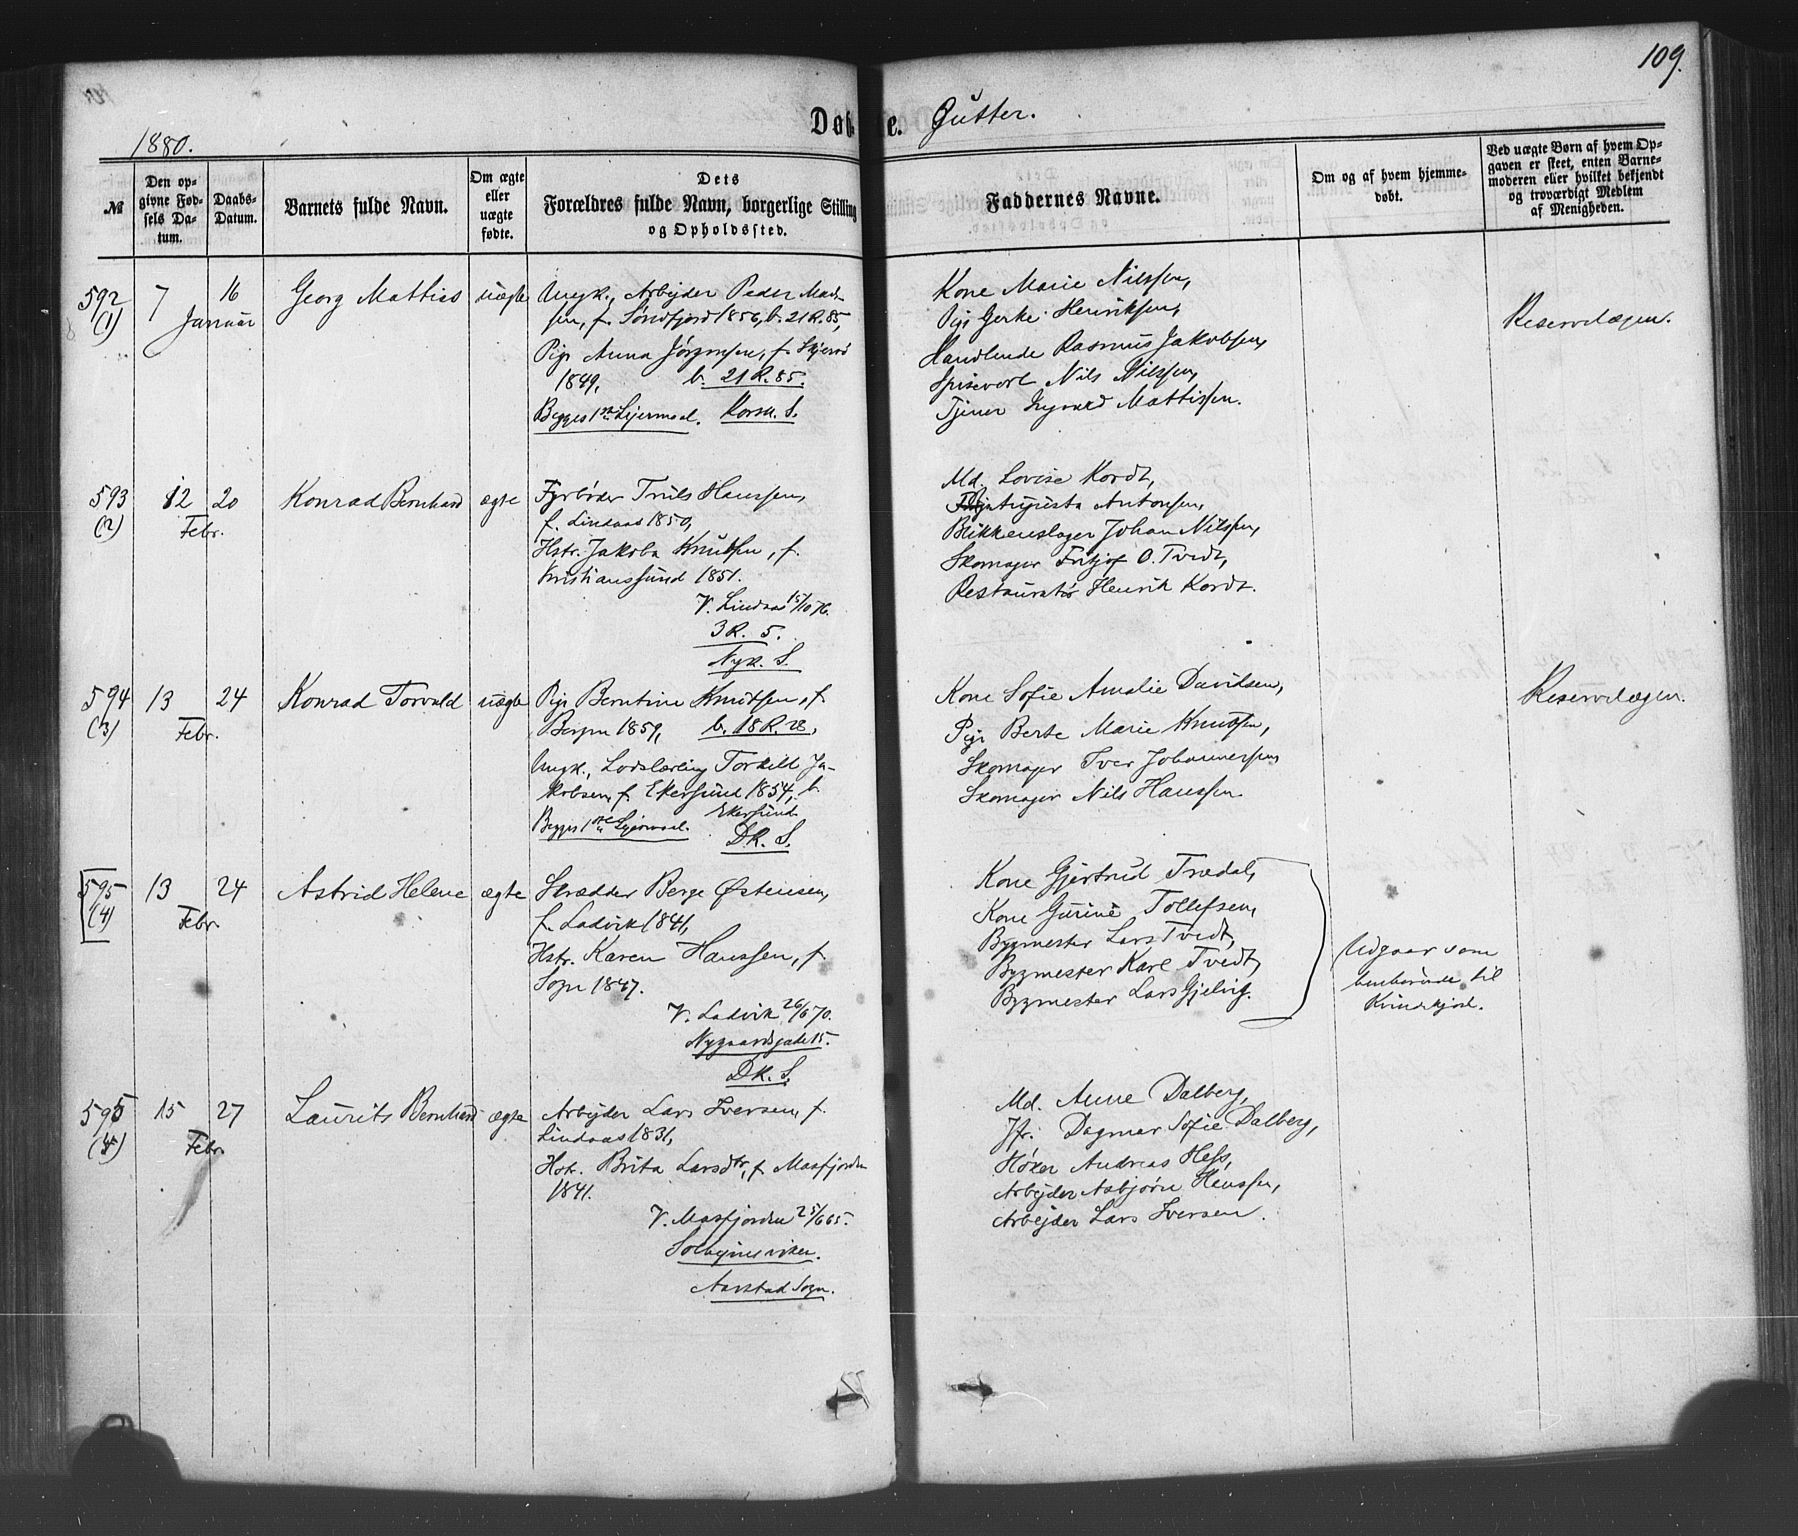 109.
1880.
Døbte.
Gutter.
№
Den op-
givne Fød-
sels Da-
tum.
Daabs-
Datum.
Barnets fulde Navn.
Om ægte
eller
uægte
fødte.
Dets
Forældres fulde Navn, borgerlige Stilling
og Opholdssted.
Faddernes Navne.
Om og af hvem hjemme-
døbt.
Ved uægte Børn af hvem Op-
gaven er skeet, enten Barne-
moderen eller hvilket bekjendt
og troværdigt Medlem
af Menigheden.
592 (1)
7 Januar
16
Georg Mattias
uægte
Ungk., Arbejder Peder Mad-
sen, f. Søndfjord 1856, b. 21 R. 85,
Pige Anna Jørgensen, f.
1849, b. 21 R. 85.
Begges 1ste Lejermaal. Korsk. S.
Kone Marie Nilssen,
Pige Gerke Henriksen,
Handlende Rasmus Jakobsen,
Spisevært Nils Nilssen,
Tjener Ingvard Mattissen.
Reservelægen.
593 (2)
12 Febr.
20
Konrad Bernhard
ægte
Fyrbøder Truls Hanssen,
f. Lindaas 1850,
Hstr. Jakoba Knudsen, f.
Kristianssund 1851.
V. Lindaas 15/10 76.
3 R. 5.
Nyk. S.
Md. Lovise Kordt,
Augusta Antonsen,
Blikkenslager Johan Nilssen,
Skomager Fritjof O. Tvedt,
Restauratør Henrik Kordt.
594 (3)
13 Febr.
24
Konrad Torvald
uægte
Pige Berntine Knudsen, f.
Bergen 1859, b. 18 R. 28,
Ungk., Lodslærling Torkild Ja-
kobsen, f. Ekersund 1854, b.
Ekersund
Begges 1ste Lejermaal.
Dk. S.
Kone Sofie Amalie Davidsen,
Pige Berte Marie Knudsen,
Skomager Iver Johannessen,
Skomager Nils Hanssen.
Reservelægen.
595 (4)
13 Febr.
24
Astrid Helene
ægte
Skrædder Berge Østensen,
f. Ladvik 1841,
Hstr. Karen Hanssen, f.
Sogn 1847.
V. Ladvik 26/6 70.
Nygaardsgade 15.
Dk. S.
Kone Gjertrud Tredal,
Kone Gurine Tollefsen,
Bygmester Lars Tvedt,
Bygmester Karl Tvedt,
Bygmester Lars Gjelvig.
Udgaar som
henhørende til
Kvindekjøn.
595 (4)
15 Febr.
27
Laurits Bernhard
ægte
Arbejder Lars Iversen, f.
Lindaas 1831,
Hst. Brita Larsdtr, f. Masfjorden
1841.
V. Masfjorden 25/6 65.
Solhejmsviken.
Aarstad Sogn.
Md. Anne Dalberg,
Jfr. Dagmar Sofie Dalberg,
Høker Andreas Hess,
Arbejder Asbjørn Henssen,
Arbejder Lars Iversen.